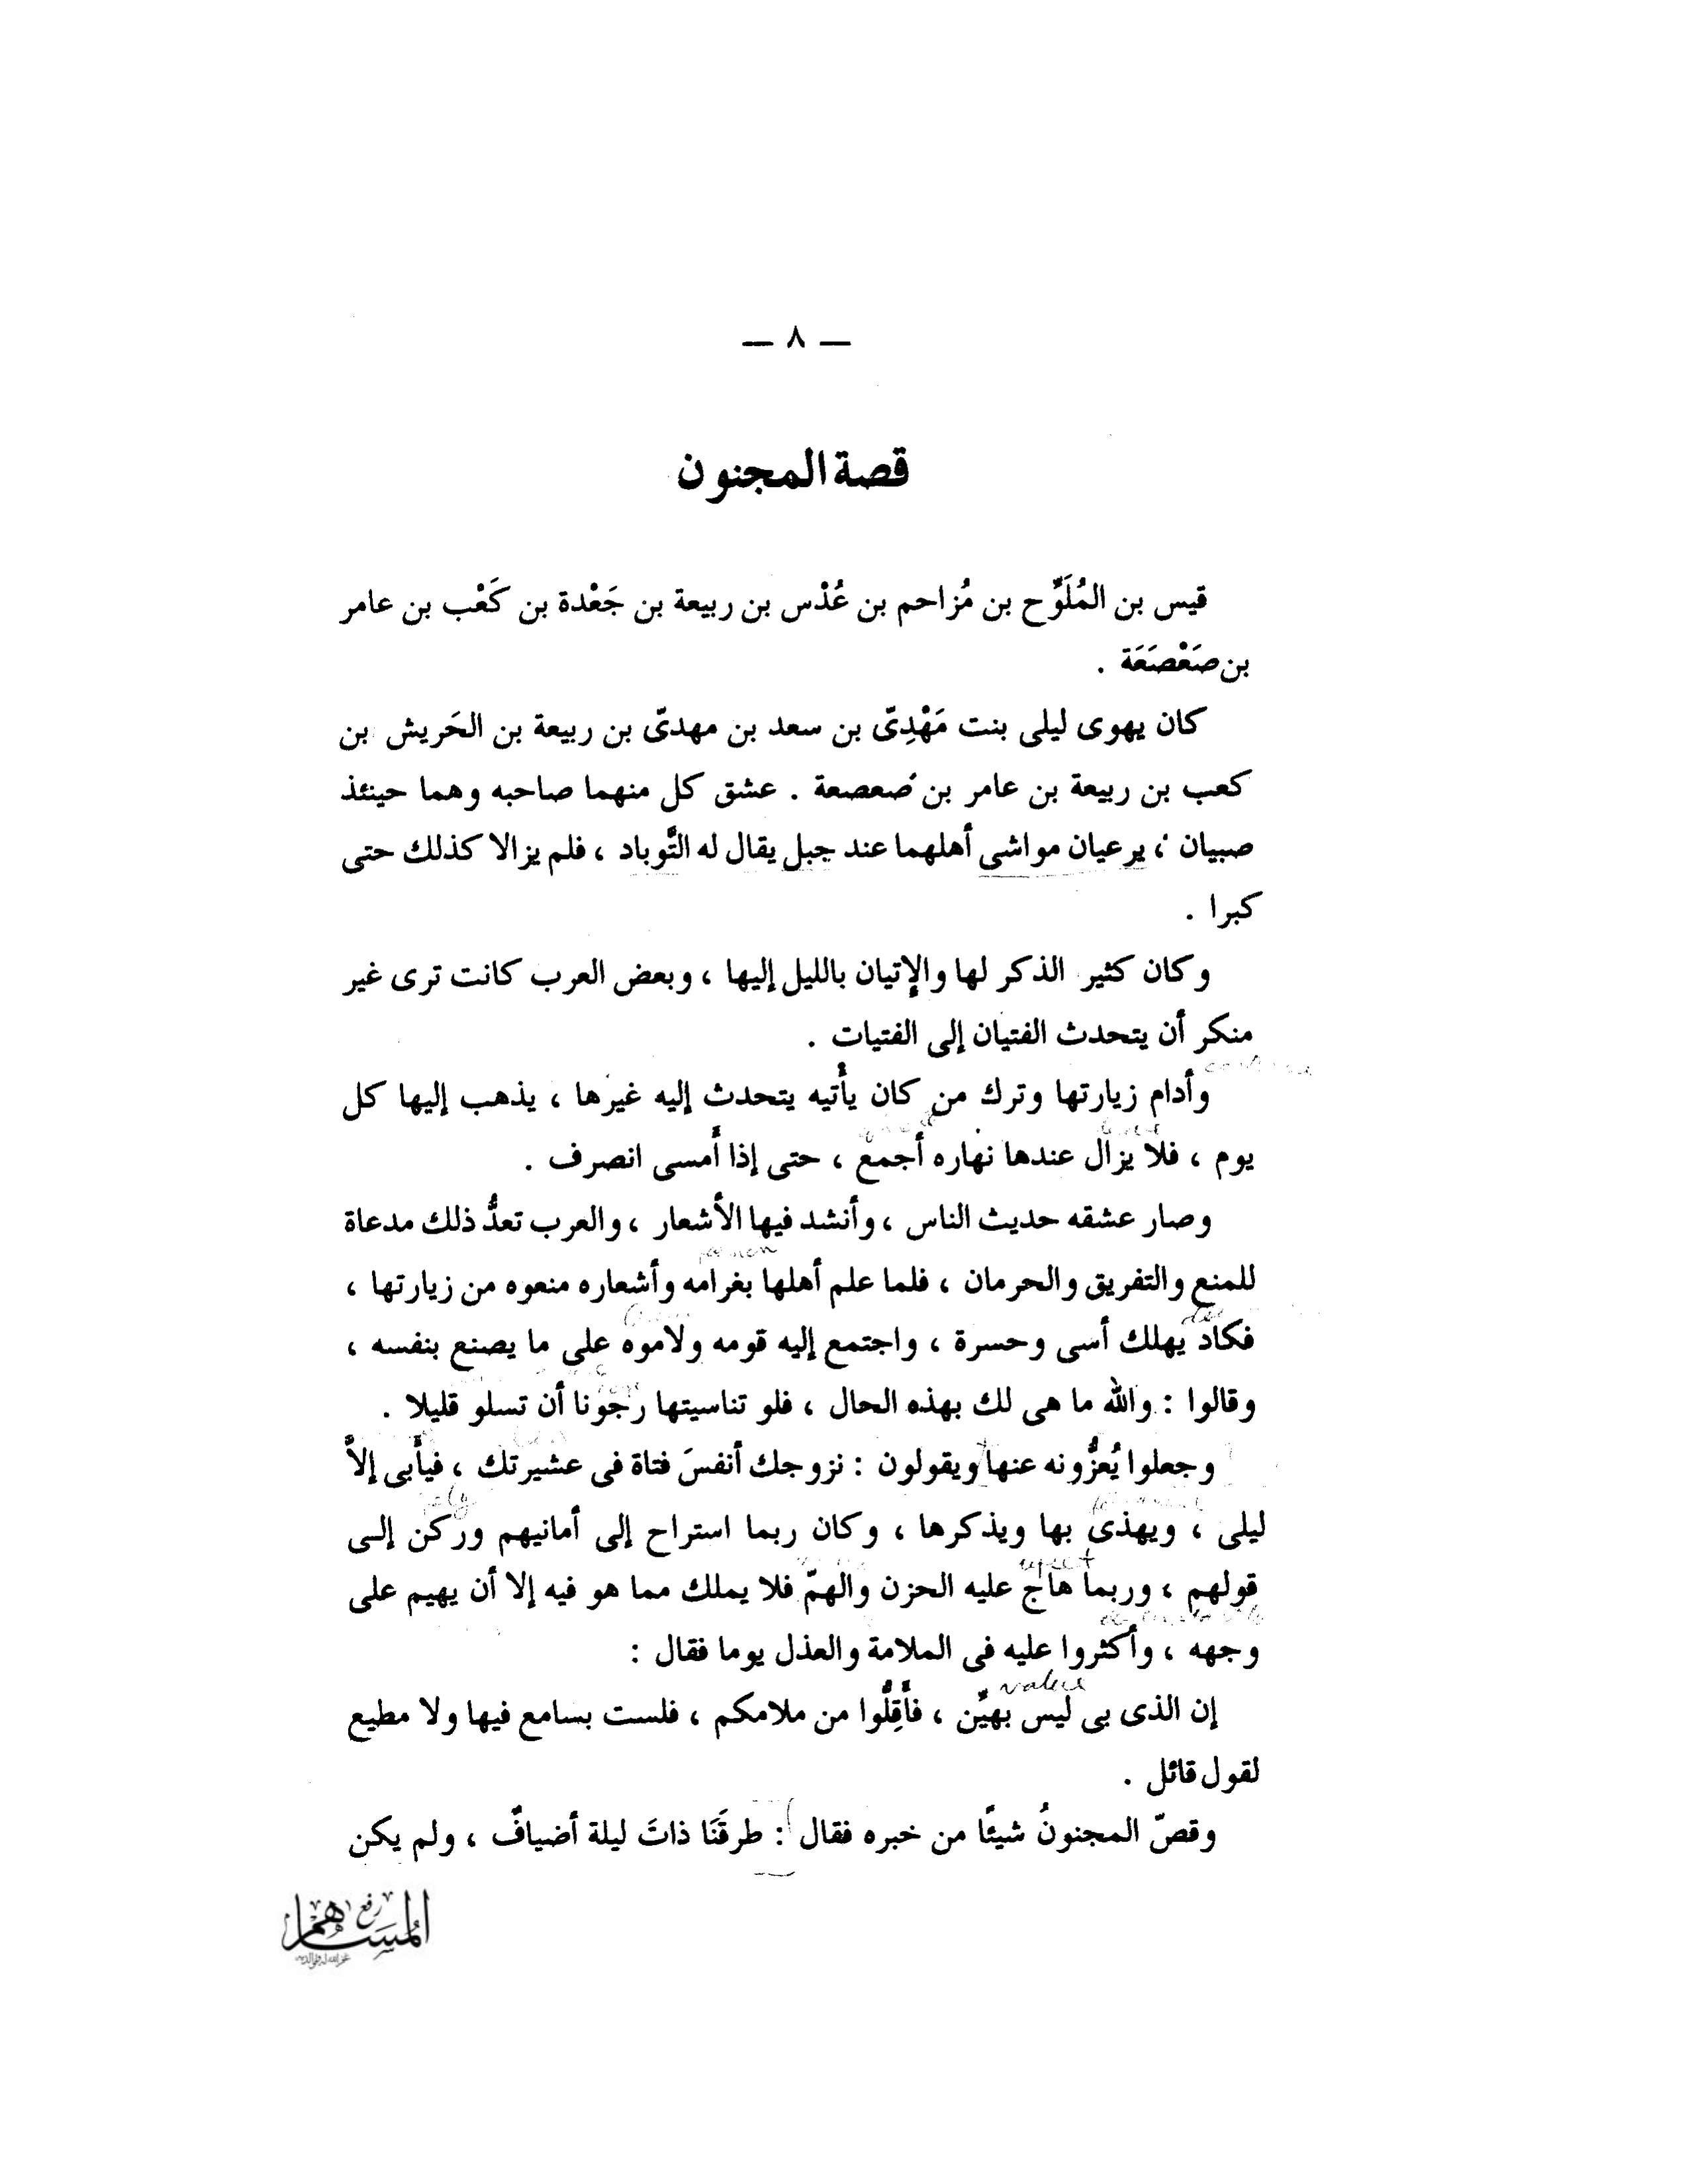 — ٨ —
قصة المجنون
قيس بن المُلَوِّح بن مُزاحم بن عُدْس بن ربيعة بن جَعْدة بن كَعْب بن عامر
بن صَعْصَعَة .
كان يهوى ليلى بنت مَهْدِىّ بن سعد بن مهدىّ بن ربيعة بن الحَريش بن
كعب بن ربيعة بن عامر بن صعصعة . عشق كل منهما صاحبه وهما حينئذ
صبيان ، يرعيان مواشى أهلهما عند جبل يقال له التَّوباد ، فلم يزالا كذلك حتى
كبرا .
وكان كثير الذكر لها والإتيان بالليل إليها ، وبعض العرب كانت ترى غير
منكر أن يتحدث الفتيان إلى الفتيات .
وأدام زيارتها وترك من كان يأتيه يتحدث إليه غيرها ، يذهب إليها كل
يوم ، فلا يزال عندها نهاره أجمع ، حتى إذا أمسى انصرف .
وصار عشقه حديث الناس ، وأنشد فيها الأشعار ، والعرب تعدُّ ذلك مدعاة
للمنع والتفريق والحرمان ، فلما علم أهلها بغرامه وأشعاره منعوه من زيارتها ،
فكاد يهلك أسى وحسرة ، واجتمع إليه قومه ولاموه على ما يصنع بنفسه ،
وقالوا : والله ما هى لك بهذه الحال ، فلو تناسيتها رجونا أن تسلو قليلا .
وجعلوا يُعزُّونه عنها ويقولون : نزوجك أنفسَ فتاة فى عشيرتك ، فيأبى إلاَّ
ليلى ، ويهذى بها ويذكرها ، وكان ربما استراح إلى أمانيهم وركن إلى
قولهم ، وربما هاج عليه الحزن والهمّ فلا يملك مما هو فيه إلا أن يهيم على
وجهه ، وأكثروا عليه فى الملامة والعذل يوما فقال :
value
إن الذى بى ليس بهيِّن ، فأَقِلُّوا من ملامكم ، فلست بسامع فيها ولا مطيع
لقول قائل .
وقصّ المجنونُ شيئًا من خبره فقال : طرقَنَا ذاتَ ليلة أضيافٌ ، ولم يكن